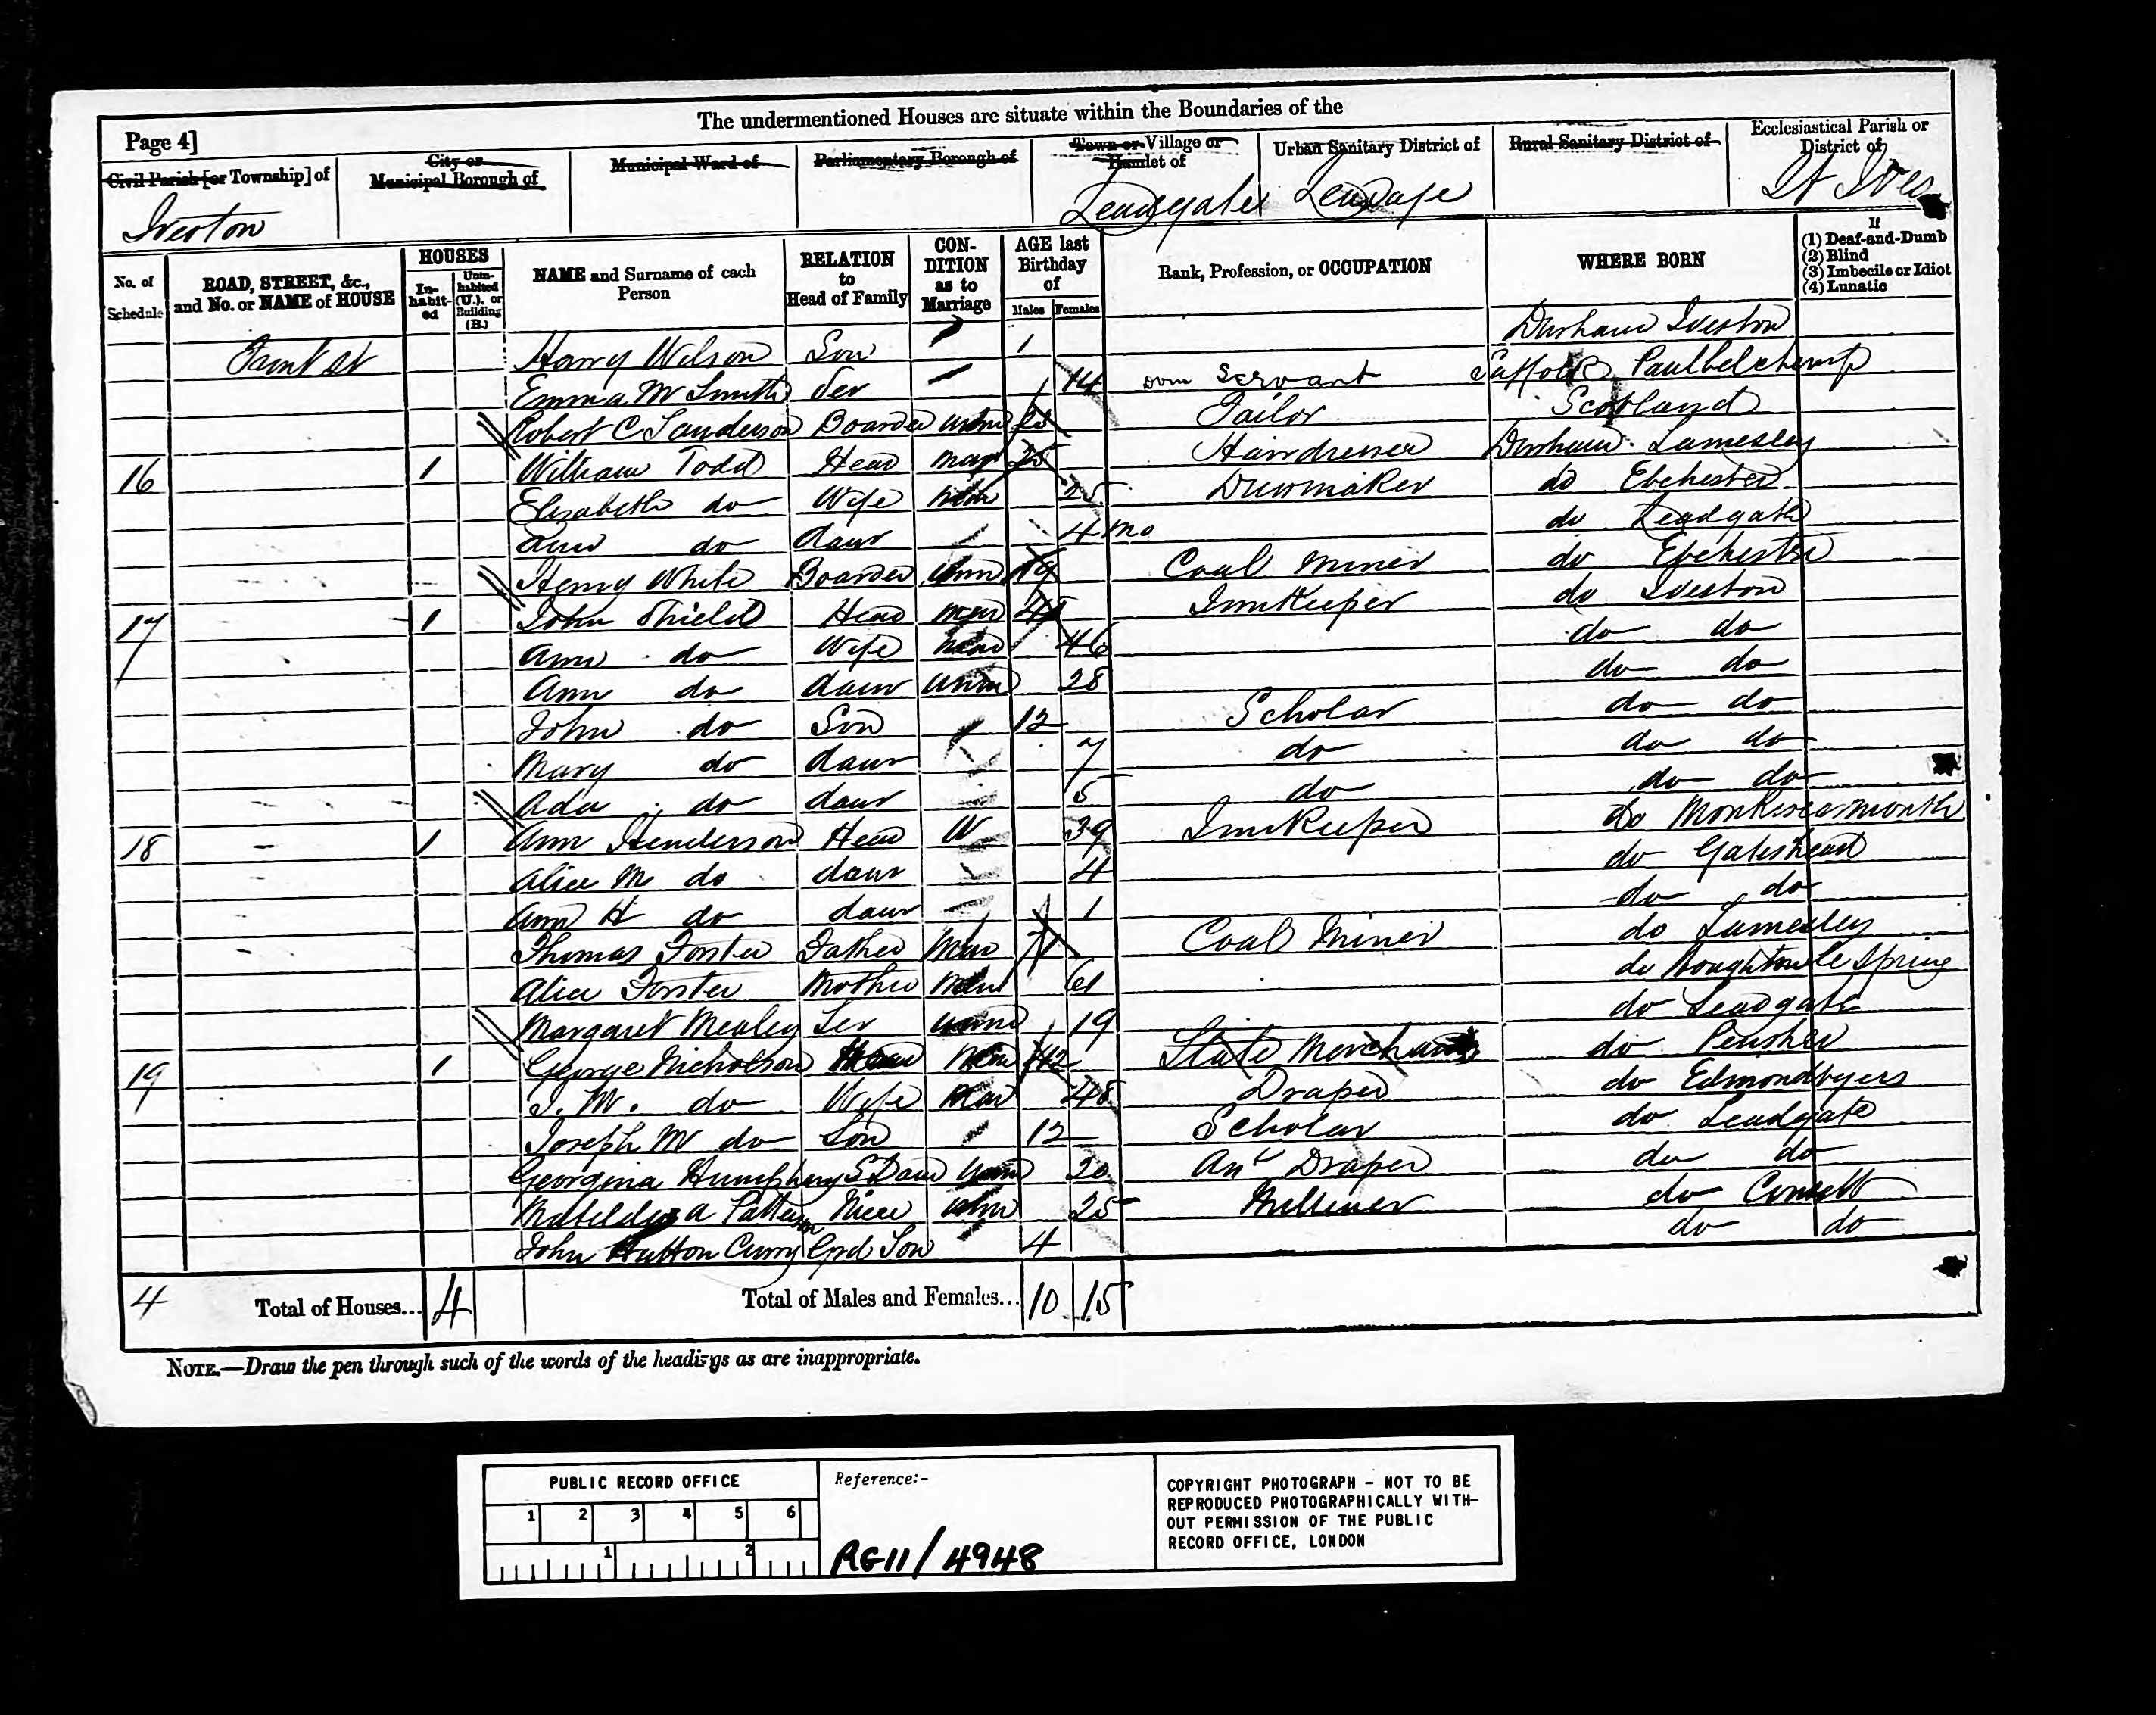 The undermentioned Houses are situate within the Boundaries of the
Page 4]
Civil Parish [or Township] of
City or Municipal Borough of
Municipal Ward of
Parliamentary Borough of
Town or Village or Hamlet of
Urban Sanitary District of
Rural Sanitary District of
Ecclesiastical Parish or District of
Iveston Leadgate Leadgate St Ives
No. of Schedule
ROAD, STREET, &c., and No. or NAME of HOUSE
HOUSES
In-habit-ed
Unin-habited (U.), or Building (B.)
NAME and Surname of each Person
RELATION to Head of Family
CON-DITION as to Marriage
AGE last Birthday of
Males Females
Rank, Profession, or OCCUPATION
WHERE BORN
If
(1) Deaf-and-Dumb
(2) Blind
(3) Imbecile or Idiot
(4) Lunatic
Front St Harry Wilson Son 1 Durham Iveston
Emma M Smith Ser 14 Dom Servant Suffolk Paulbelchamp
Robert C Sanderson Boarder Unm Tailor Scotland
16 1 William Todd Head Mar 25 Hairdresser Durham Lamesley
Elizabeth do Wife 25 Dressmaker do Ebchester
do daur 4 mo do Leadgate
Henry White Boarder Unm 19 Coal Miner do Ebchester
17 1 John Shield Head Mar InnKeeper do Iveston
Ann do Wife Mar 46 do do
Ann do daur Unm 28 do do
John do Son 12 Scholar do do
Mary do daur 7 do do do
Ada do daur 5 do do do
18 1 Ann Henderson Head W 39 InnKeeper do Monkwearmouth
Alice M do daur 4 do Gateshead
Ann H do daur 1 do do
Thomas Forster Father Mar 71 Coal Miner do Lamesley
Alice Forster Mother Mar 61 do Houghton le Spring
Margaret Mealey Ser Unm 19 do Leadgate
19 1 George Nicholson Head Mar 42 Slate Merchant do Pensher
J. M. do Wife Mar 48 Draper do Edmondbyers
Joseph M do Son 12 Scholar do Leadgate
Georgina Humphrey S Daur Unm 20 Ast Draper do do
Matilda A Patterson Niece Unm 25 Milliner do Consett
John Hutton Curry Grd Son 4 do do
4 Total of Houses... 4 Total of Males and Females... 10 15
NOTE.—Draw the pen through such of the words of the headings as are inappropriate.
PUBLIC RECORD OFFICE
1 2 3 4 5 6
1 2
Reference:-
RG11/4948
COPYRIGHT PHOTOGRAPH – NOT TO BE
REPRODUCED PHOTOGRAPHICALLY WITH-
OUT PERMISSION OF THE PUBLIC
RECORD OFFICE, LONDON